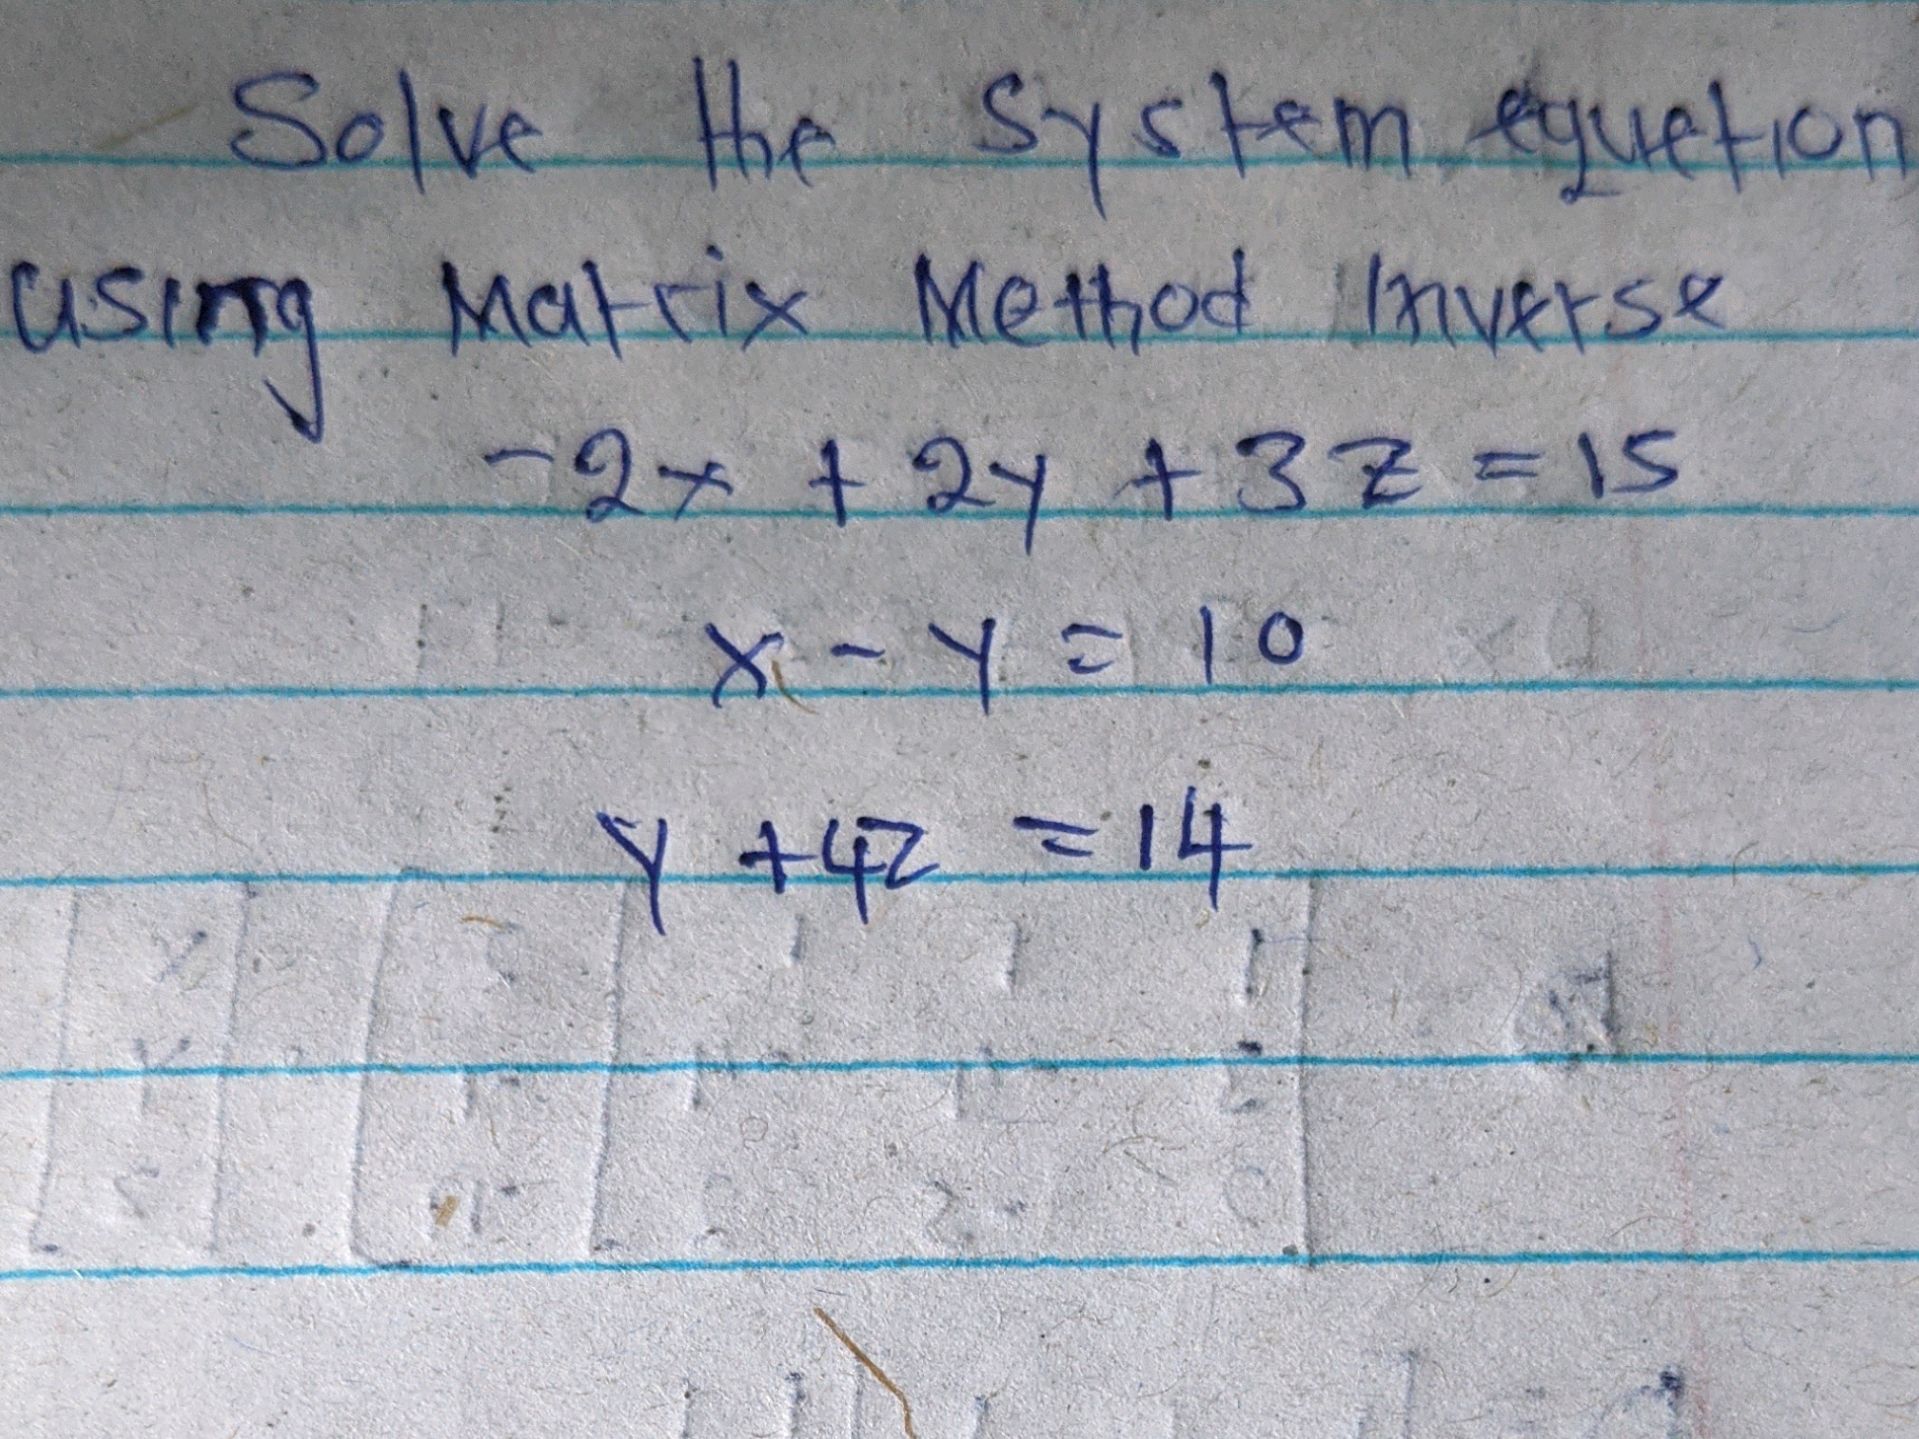 Solve the System equetion
using Matrix Method Inverse
-2x + 2y + 3z = 15
x - y = 10
y + 4z = 14